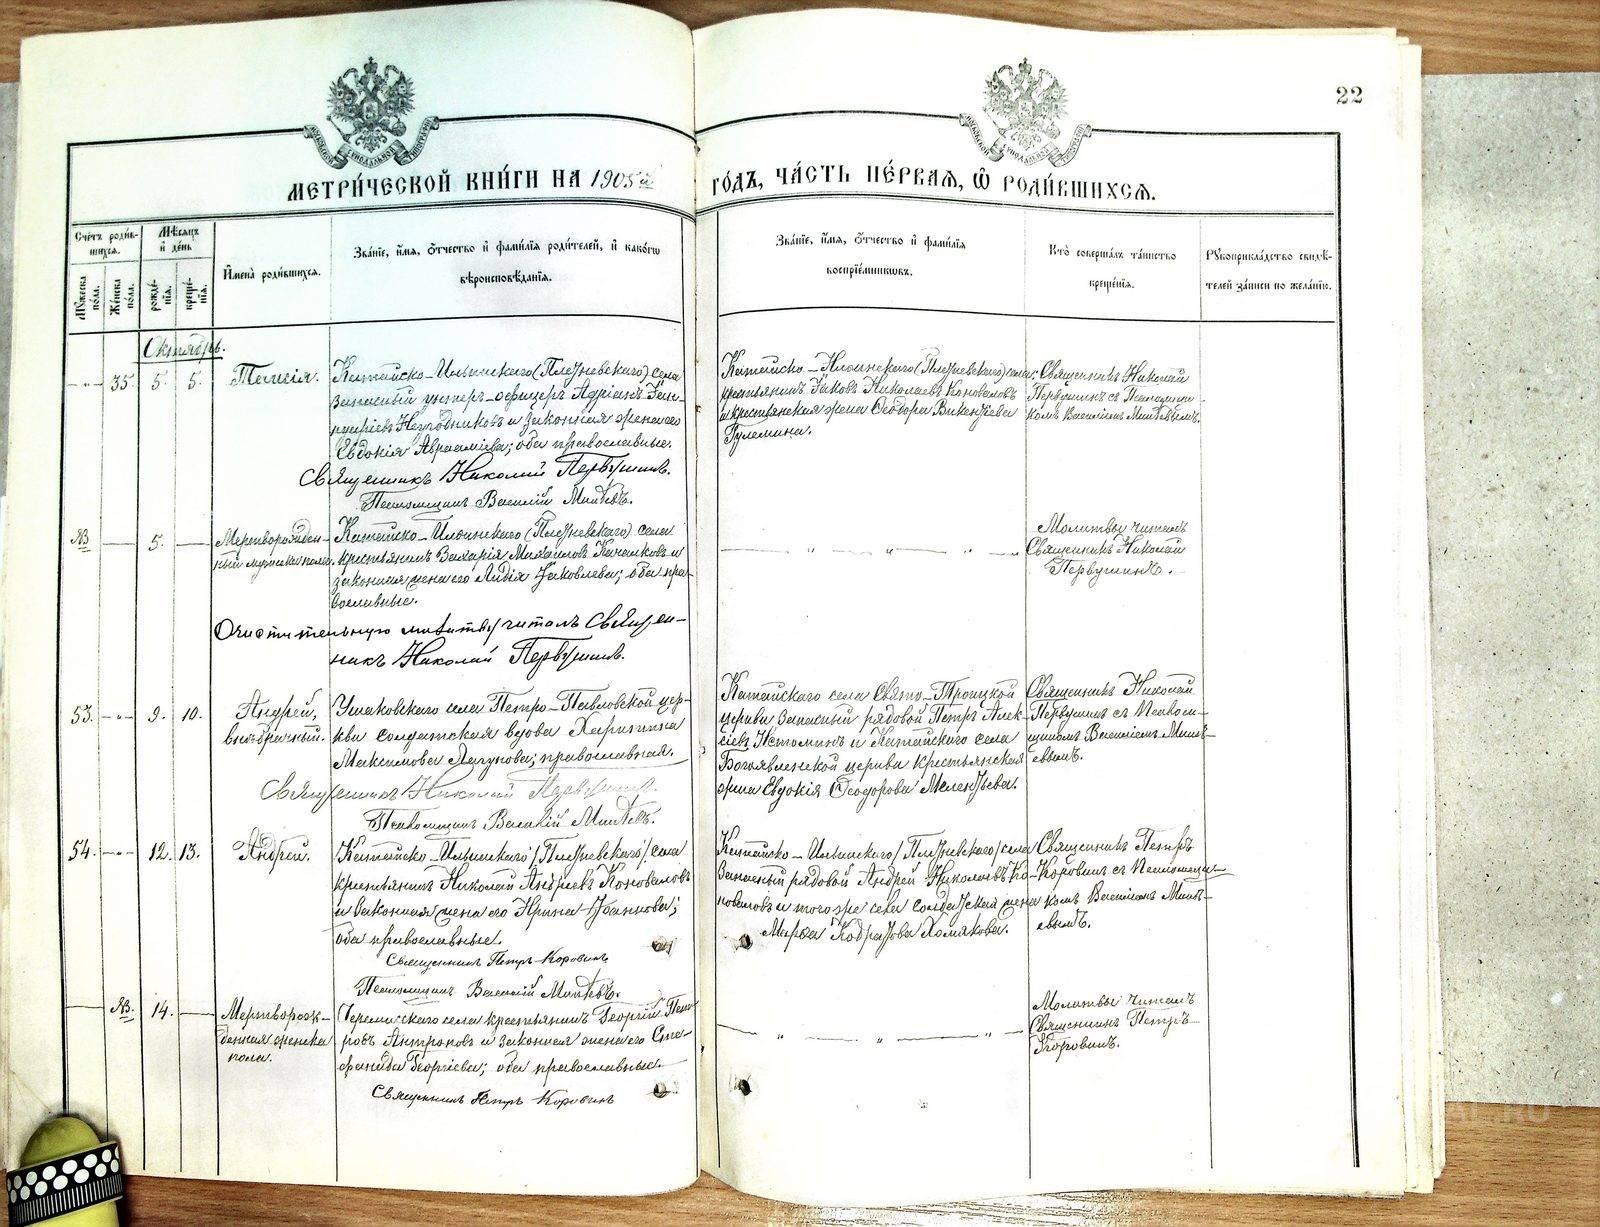 22
МЕТРИ́ЧЕСКОЙ КНИ́ГИ НА 1905й ГОДЪ, ЧА́СТЬ ПЕ́РВАЯ, Ѡ РОДИ́ВШИХСЯ.
Счетъ роди́в-
шихся.
Мѣсяцъ
и день
Мужеска
пола.
Женска
пола.
рожде-
нія.
креще-
нія.
Имена роди́вшихся.
Зва́ніе, и́мя, о́тчество и фами́лія роди́телей, и како́гѡ
вѣроисповѣ́данія.
Зва́ніе, и́мя, о́тчество и фами́лія
воспріе́мникѡвъ.
Кто̀ соверша́лъ та́инство
креще́нія.
Рукоприкла́дство свидѣ́-
телей за́писи по жела́нію.
Октябрь.
35. 5. 5. Таисія.
Катайско-Ильинскаго (Плотневскаго) села
запасный унтеръ-офицеръ Адріанъ
и законная жена его
Евдокія Авраамiева; оба православные.
Священникъ Николай Первушинъ.
Псаломщикъ Василій
Катайско-Ильинскаго (Плотневскаго) села
крестьянинъ Іаковъ Николаевъ Коноваловъ
и крестьянская жена Ѳеодора Викентьева
Гулемина.
Священникъ Николай
Первушинъ съ Псаломщи-
комъ Василіемъ
5. Мертворожден-
ный мужска пола.
Катайско-Ильинскаго (Плотневскаго) села
крестьянинъ Захарія Михайловъ Качалковъ и
законная жена его Лидія Іаковлева; оба пра-
вославные.
Очистительную молитву читалъ Священ-
никъ Николай Первушинъ.
Молитвы читалъ
Священникъ Николай
Первушинъ.
53. 9. 10. Андрей,
внѣбрачный.
Ушаковскаго села Петро-Павловской цер-
кви солдатская вдова Харитина
Максимова Лагунова; православная.
Священникъ Николай Первушинъ.
Псаломщикъ Василій
Катайскаго села Свято-Троицкой
церкви запасный рядовой Петръ Алек-
сіевъ Истоминъ и Катайскаго села
Богоявленской церкви крестьянская
жена Евдокія Ѳеодорова Мелентьева.
Священникъ Николай
Первушинъ съ Псалом-
щикомъ Василіемъ
54. 12. 13. Андрей.
Катайско-Ильинскаго (Плотневскаго) села
крестьянинъ Николай Андреевъ Коноваловъ
и законная жена его Ирина Іоаннова;
оба православные.
Священникъ Петръ Коровинъ
Псаломщикъ Василій
Катайско-Ильинскаго (Плотневскаго) села
Запасный рядовой Андрей Николаевъ Ко-
новаловъ и того же села солдатская жена
Марѳа Кодратова Хомякова.
Священникъ Петръ
Коровинъ съ Псаломщи-
комъ Василіемъ
14. Мертворож-
денная женска
пола.
села крестьянинъ Георгій Пет-
ровъ Антроповъ и законная жена его Сте-
фанида Георгіева; оба православные.
Священникъ Петръ Коровинъ
Молитвы читалъ
Священникъ Петръ
Коровинъ.